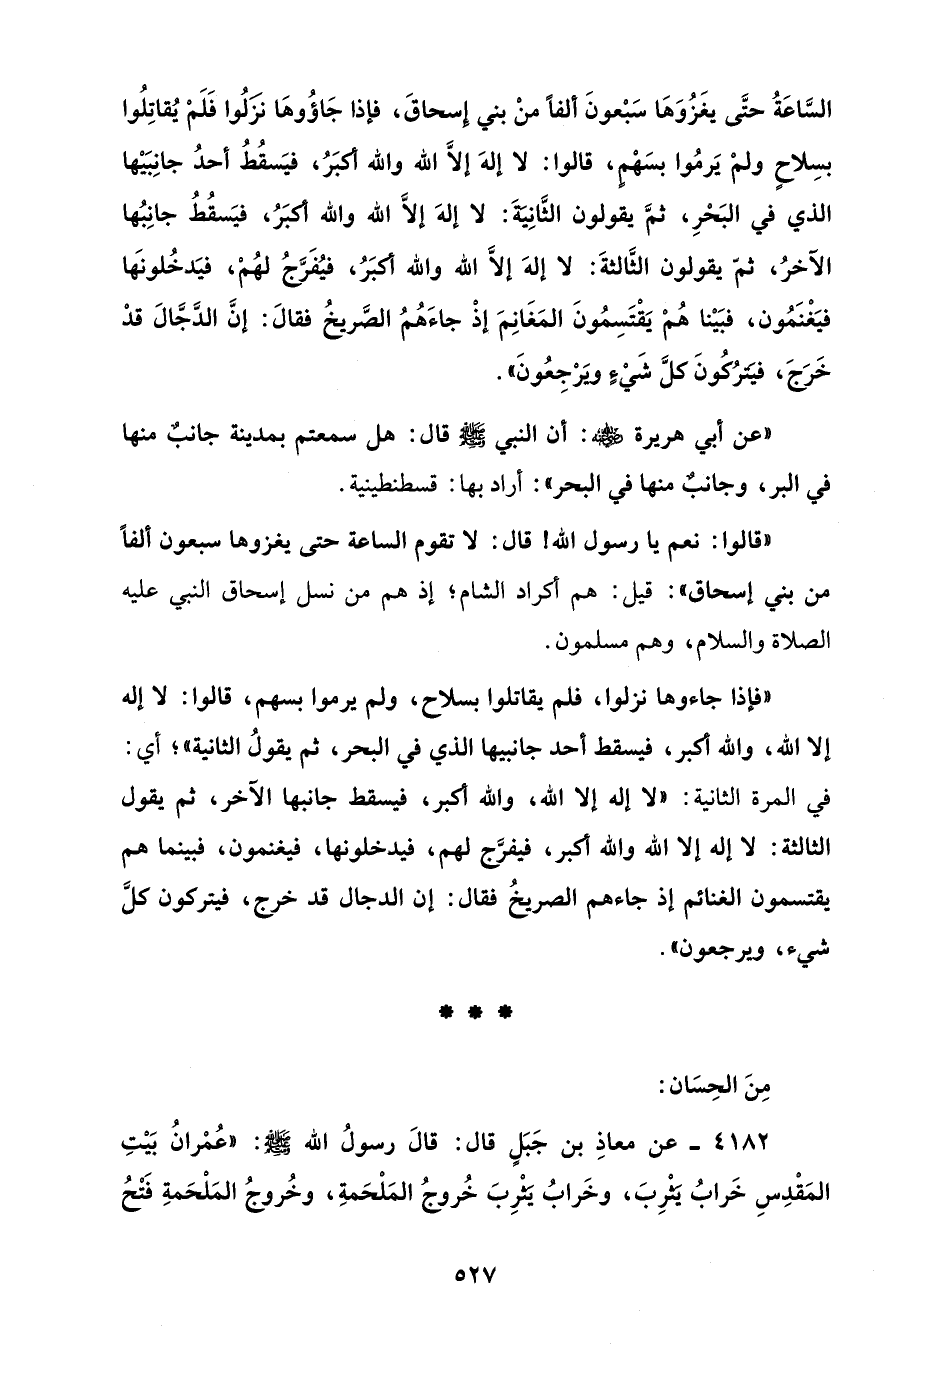 السَّاعَةُ حتَّى يغَزُوَهَا سَبْعونَ ألفاً منْ بني إِسحاقَ، فإذا جَاؤُوهَا نزَلُوا فَلَمْ يُقاتِلُوا
بسِلاحٍ ولمْ يَرمُوا بسَهْمٍ، قالوا: لا إلهَ إلاَّ الله والله أكبَرُ، فيَسقُطُ أحدُ جانِبَيْها
الذي في البَحْرِ، ثمَّ يقولون الثَّانِيَةَ: لا إلهَ إلاَّ الله والله أكبَرُ، فيَسقُطُ جانِبُها
الآخرُ، ثمّ يقولون الثَّالثةَ: لا إلهَ إلاَّ الله والله أكبَرُ، فيُفَرَّجُ لهُمْ، فيَدخُلونهَا
فيَغْنَمُون، فبَيْنا هُمْ يَقْتَسِمُونَ المَغانِمَ إذْ جاءَهُمُ الصَّريخُ فقالَ: إنَّ الدَّجَّالَ قدْ
خَرَجَ، فيَترُكُونَ كلَّ شَيْءٍ ويَرْجِعُونَ».
«عن أبي هريرة ﵁: أن النبي ﷺ قال: هل سمعتم بمدينة جانبٌ منها
في البر، وجانبٌ منها في البحر»: أراد بها: قسطنطينية.
«قالوا: نعم يا رسول الله! قال: لا تقوم الساعة حتى يغزوها سبعون ألفاً
من بني إسحاق»: قيل: هم أكراد الشام؛ إذ هم من نسل إسحاق النبي عليه
الصلاة والسلام، وهم مسلمون.
«فإذا جاءوها نزلوا، فلم يقاتلوا بسلاح، ولم يرموا بسهم، قالوا: لا إله
إلا الله، والله أكبر، فيسقط أحد جانبيها الذي في البحر، ثم يقولُ الثانية»؛ أي:
في المرة الثانية: «لا إله إلا الله، والله أكبر، فيسقط جانبها الآخر، ثم يقول
الثالثة: لا إله إلا الله والله أكبر، فيفرَّج لهم، فيدخلونها، فيغنمون، فبينما هم
يقتسمون الغنائم إذ جاءهم الصريخُ فقال: إن الدجال قد خرج، فيتركون كلَّ
شيء، ويرجعون».
* * *
مِنَ الحِسَان:
٤١٨٢ - عن معاذِ بن جَبَلٍ قال: قالَ رسولُ الله ﷺ: «عُمْرانُ بَيْتِ
المَقْدِسِ خَرابُ يَثْرِبَ، وخَرابُ يَثْرِبَ خُروجُ المَلْحَمةِ، وخُروجُ المَلْحَمةِ فَتْحُ
٥٢٧